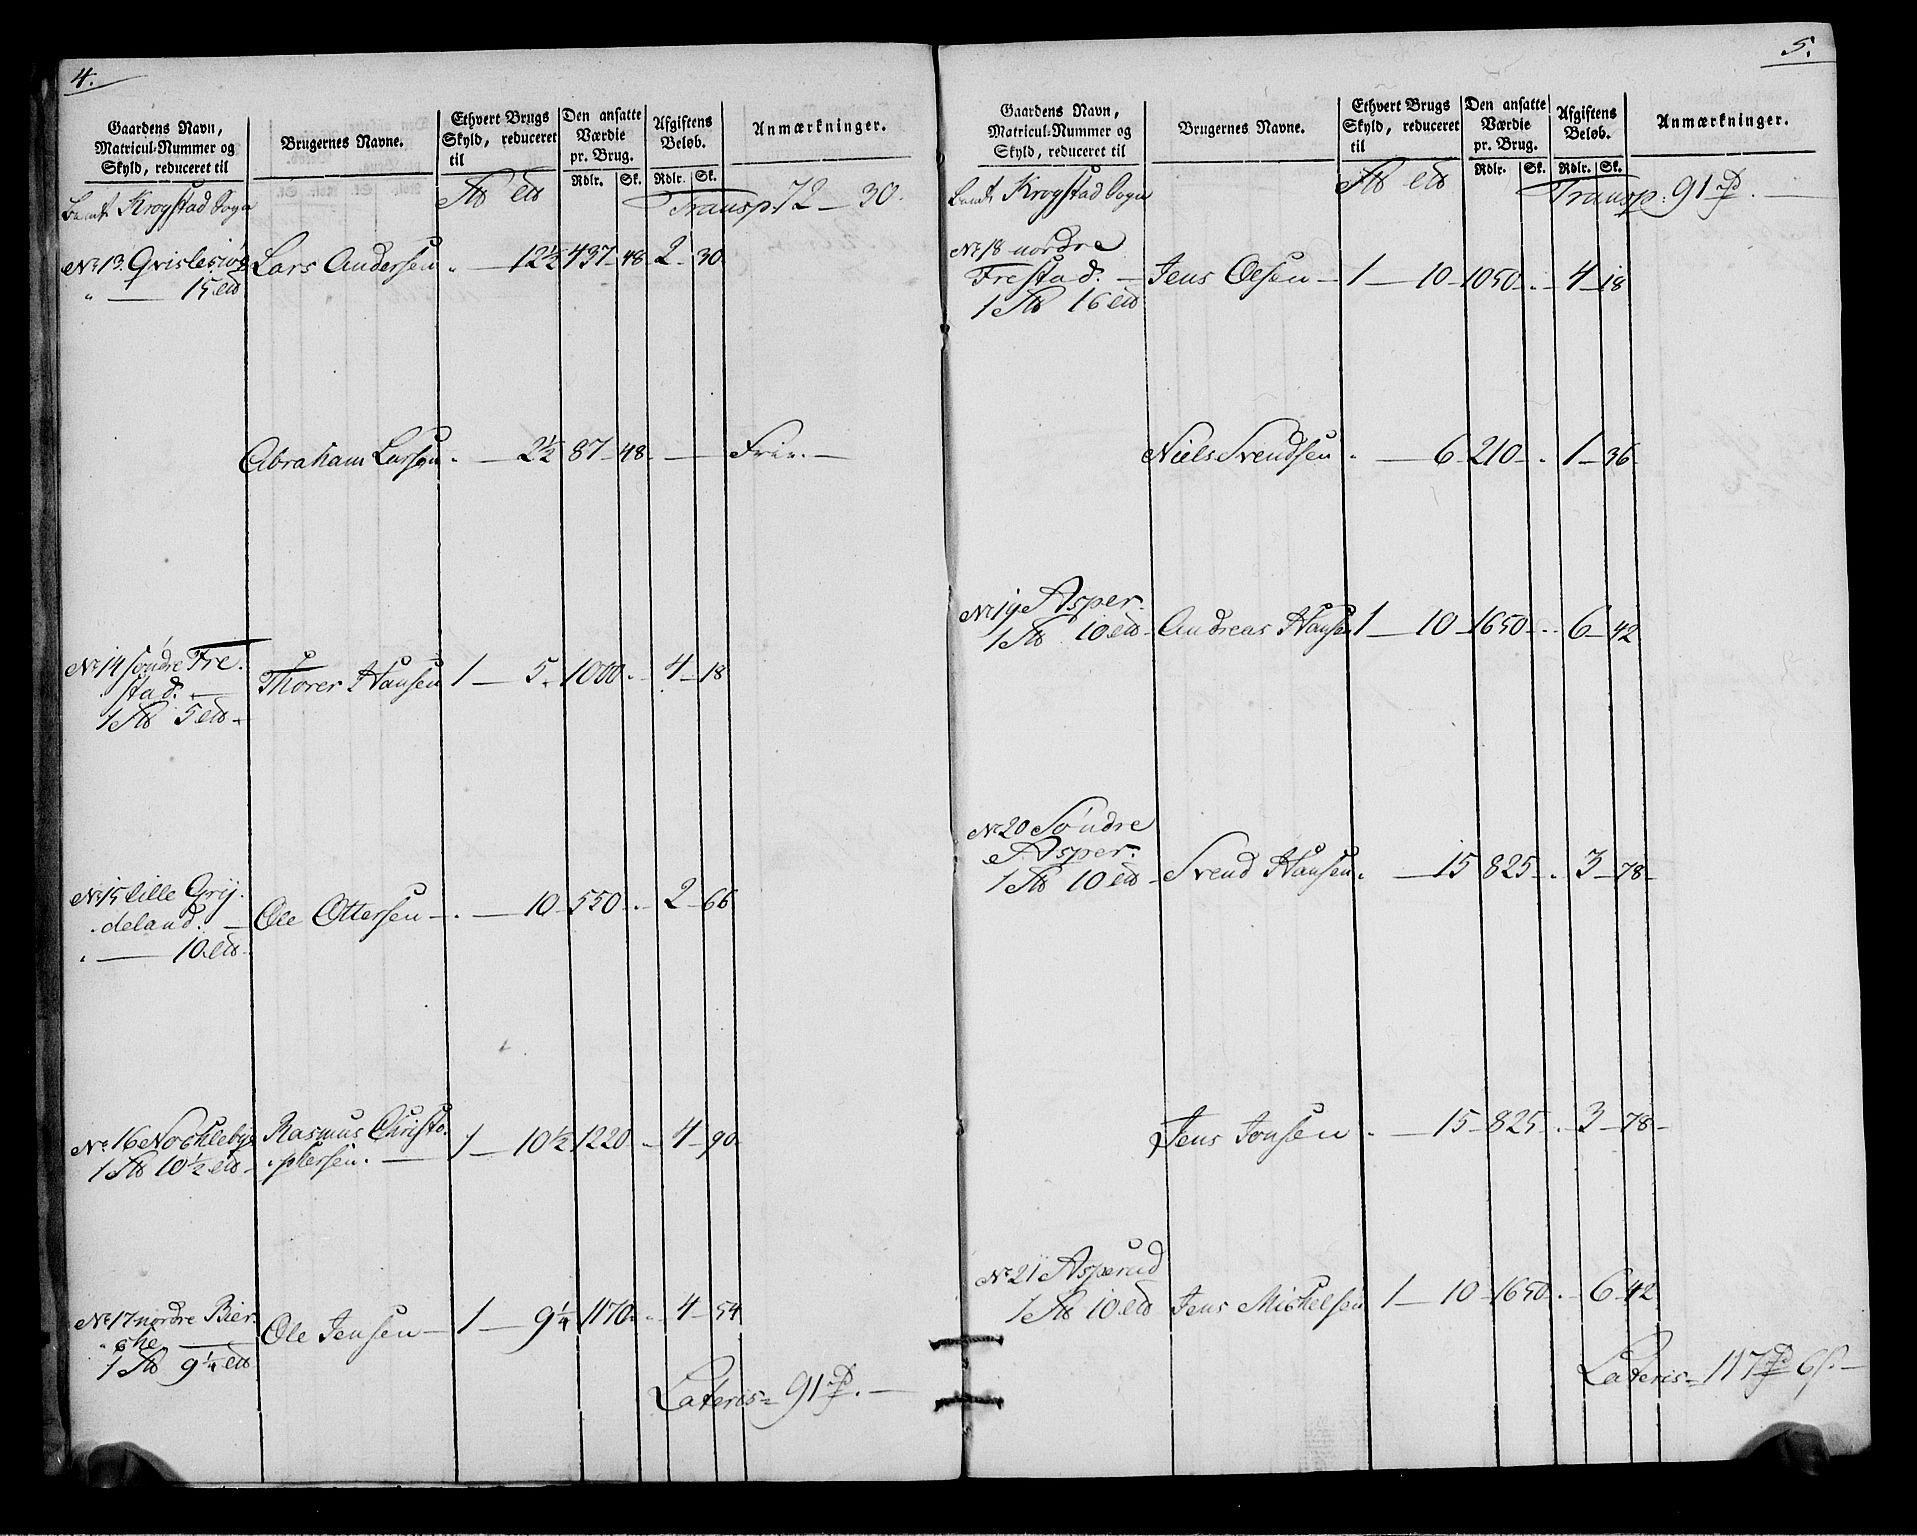 4.
Gaardens Navn,
Matricul-Nummer og
Skyld, reduceret til
Brugernes Navne.
Ethvert Brugs
Skyld, reduceret
til
Den ansatte
Værdie
pr. Brug.
Rdlr. Sk.
Afgiftens
Beløb.
Rdlr. Sk.
Anmærkninger.
Krogstad Sogn
Transp. 72 — 30.
No 13.
15
Lars Andersen " — 12½ 437 — 48 2 — 30
Abraham Larsen " — 2½ 87 — 48 — Frie. —
No 14 söndre Fre-
stad. —
1 5
Thorer Hansen 1 — 5. 1000 " 4 — 18
No 15 lille Gry-
deland. —
" — 10
Ole Ottersen — " — 10 — 550 — " — 2 — 66
No 16 Nochleby
1 10½
Rasmus Christo-
phersen. — 1 — 10½ 1220 — 4 — 90
No 17 nordre Bier-
che
1 9¼
Ole Jensen — 1 — 9¼ 1170. 4 — 54
Lateris = 91 —
5.
Gaardens Navn,
Matricul-Nummer og
Skyld, reduceret til
Brugernes Navne.
Ethvert Brugs
Skyld, reduceret
til
Den ansatte
Værdie
pr. Brug.
Rdlr. Sk.
Afgiftens
Beløb.
Rdlr. Sk.
Anmærkninger.
Krogstad Sogn
Transp. 91 —
No 18 nordre
Frestad. —
1 16
Jens Olsen — 1 — 10 — 1050 — 4 — 18
Niels Svendsen " — 6 — 210 — 1 — 36
No 19 Asper.
1 10
Andreas Hansen 1 — 10 — 1650 — 6 — 42
No 20 Söndre
Asper.
1 10
Svend Hansen. — 15 825 — 3 — 78
Jens Jonsen — 15 — 825 — 3 — 78
No 21 Asperud
1 10
Jens Michelsen 1 — 10 — 1650 — 6 — 42
Lateris = 117 6 —